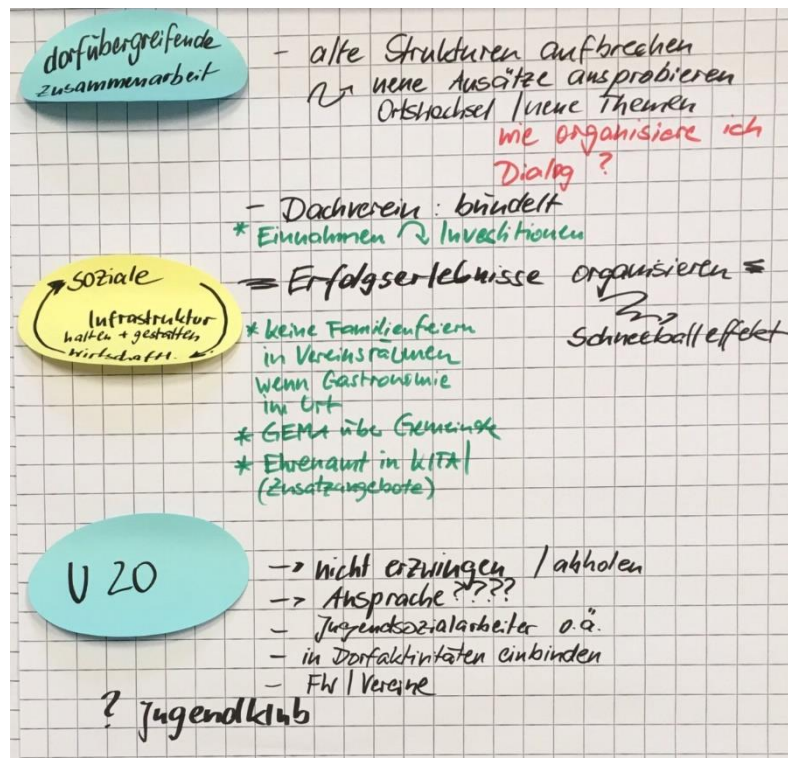 dorfübergreifende
zusammenarbeit
- alte Strukturen aufbrechen
neue Ansätze ausprobieren
Ortswechsel / neue Themen
wie organisiere ich
Dialog ?
- Dachverein : bündelt
* Einnahmen Investitionen
soziale
Infrastruktur
halten + gestalten
wirtschaftl.
= Erfolgserlebnisse organisieren =
Schneeballeffekt
* keine Familienfeiern
in Vereinsräumen
wenn Gastronomie
im Ort
* GEMA über Gemeinde
* Ehrenamt in KITA /
(Zusatzangebote)
U 20
-> nicht erzwingen / abholen
-> Ansprache ????
- Jugendsozialarbeiter o.ä.
- in Dorfaktivitäten einbinden
- FW / Vereine
? Jugendklub